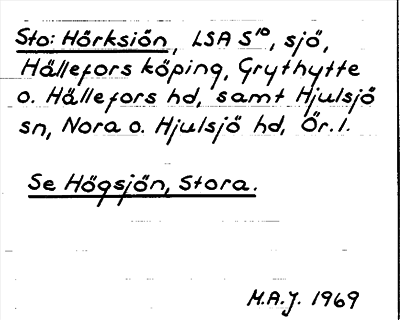 Sto: Hörksiön, LSA S¹⁰, sjö,
Hällefors köping, Grythytte
o. Hällefors hd, samt Hjulsjö
sn, Nora o. Hjulsjö hd, Ör. l.
Se Högsjön, Stora.
M.A.J. 1969